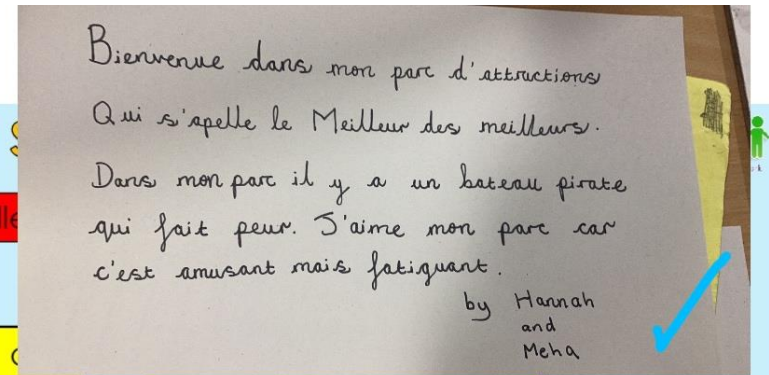 Bienvenue dans mon parc d'attractions
Qui s'apelle le Meilleur des meilleurs.
Dans mon parc il y a un bateau pirate
qui fait peur. J'aime mon parc car
c'est amusant mais fatiguant.
by Hannah
and
Meha